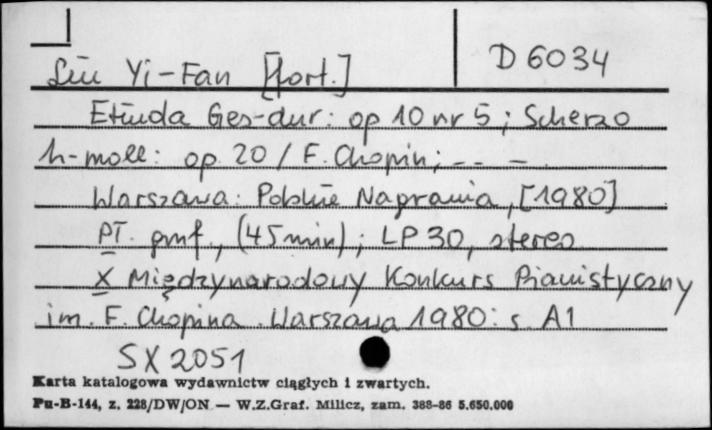 D 6034
Liu Yi-Fan [fort.]
Etiuda Ges-dur: op 10 nr 5; Scherzo
h-moll: op. 20 / F. Chopin; - - -
Warszawa: Polskie Nagrania, [1980]
PŁ. gmf., (45 min); LP 30, stereo
X Międzynarodowy Konkurs Pianistyczny
im. F. Chopina. Warszawa 1980: s. A1
SX 2051
Karta katalogowa wydawnictw ciągłych i zwartych.
Pu-B-144, z. 228/DW/ON — W.Z.Graf. Milicz, zam. 388-86 5.650.000